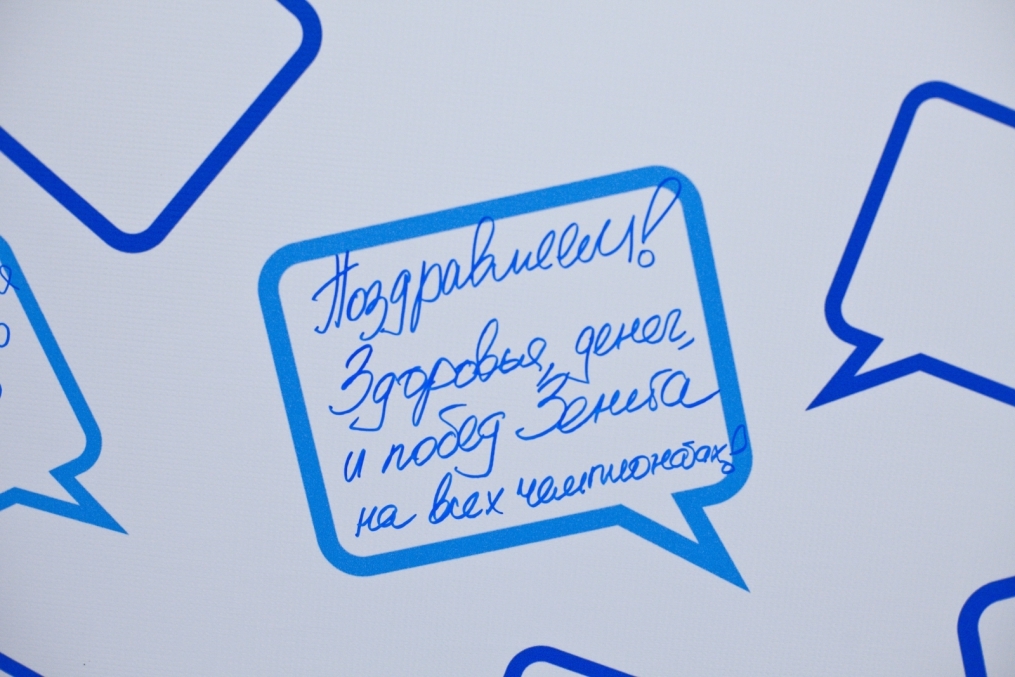 Поздравляем!
Здоровья, денег,
и побед Зенита
на всех чемпионатах!